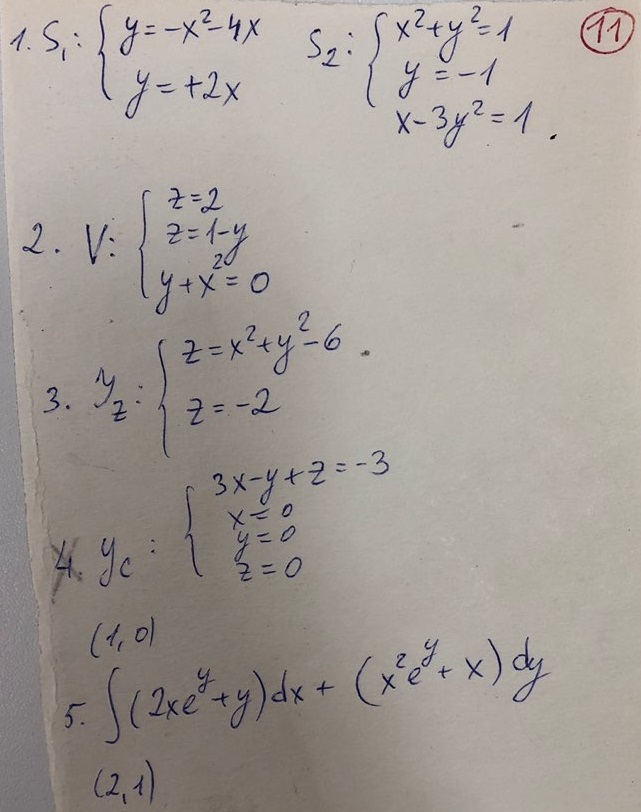 1. S₁: { y = -x² - 4x
y = +2x
S₂: { x² + y² = 1
y = -1
x - 3y² = 1 .
11
2. V: { z = 2
z = 1 - y
y + x² = 0
3. y_z: { z = x² + y² - 6 .
z = -2
4. y_c: { 3x - y + z = -3
x = 0
y = 0
z = 0
(1, 0)
5. ∫ (2xe^y + y) dx + (x²e^y + x) dy
(2, 1)